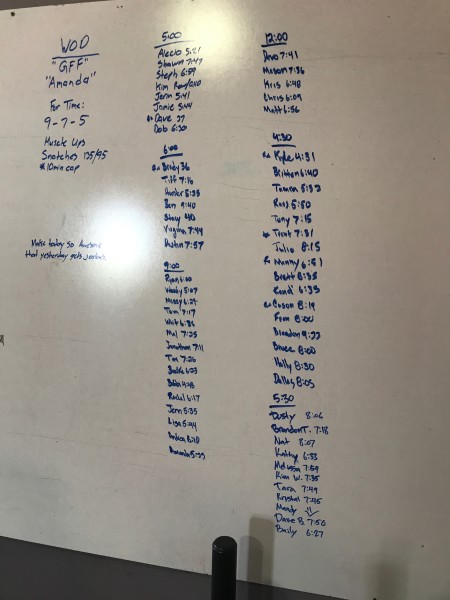 WOD
"GFF"
"Amanda"
For Time:
9-7-5
Muscle Ups
Snatches 135/95
*10min cap
Make today so awesome
that yesterday gets jealous
5:00
Alecio 5:21
Shawn 7:47
Steph 6:59
Kim
Jern 5:41
Jamie 5:44
Dave 37
Dob 6:20
6:00
Brady 36
Tiff 7:16
Hunter 5:33
Ben 9:40
Stacy 40
Virginia 7:44
Dustin 7:57
9:00
Ryan 6:00
Woody 5:07
Missy 6:24
Tom 7:17
Whit 6:36
Mal 7:25
Jonathan 7:11
Tim 7:26
6:23
4:28
Rachel 6:17
Jenn 5:35
Lisa 5:44
8:10
Amanda 5:33
12:00
Dave 7:41
Mason 7:36
Kris 6:48
Chris 6:09
Matt 6:56
4:30
Kyle 4:31
Britten 6:40
Tamra 5:32
Ross 5:50
Tony 7:15
Trent 7:31
Julio 8:15
Manny 6:51
Brett 8:35
Randi 6:33
Cason 8:19
Fran 8:00
Brandon 9:22
Bruce 8:00
Holly 8:30
Dallas 8:05
5:30
Dusty 8:06
Brandon T. 7:18
Nat 8:07
Kathy 6:33
Melissa 7:59
Kim W. 7:35
Tara 7:49
Krystal 7:45
Mandy
Dave B 7:50
Baily 6:27